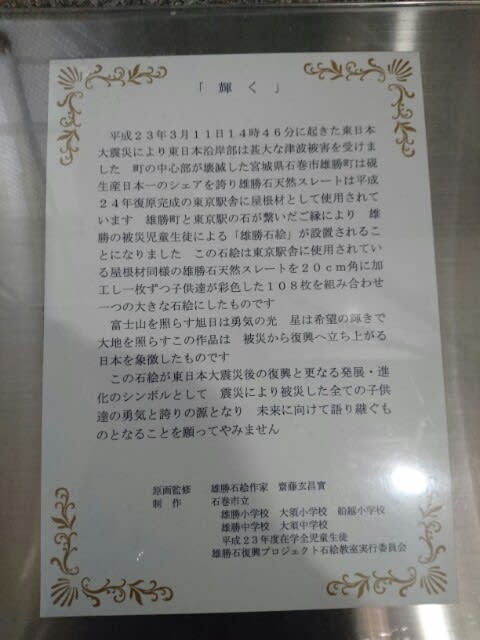 「 輝 く 」
平成２３年３月１１日１４時４６分に起きた東日本
大震災により東日本沿岸部は甚大な津波被害を受けま
した　町の中心部が壊滅した宮城県石巻市雄勝町は硯
生産日本一のシェアを誇り雄勝石天然スレートは平成
２４年復原完成の東京駅舎に屋根材として使用されて
います　雄勝町と東京駅の石が繋いだご縁により　雄
勝の被災児童生徒による「雄勝石絵」が設置されるこ
とになりました　この石絵は東京駅舎に使用されてい
る屋根材同様の雄勝石天然スレートを２０ｃｍ角に加
工し一枚ずつ子供達が彩色した１０８枚を組み合わせ
一つの大きな石絵にしたものです
富士山を照らす旭日は勇気の光　星は希望の輝きで
大地を照らすこの作品は　被災から復興へ立ち上がる
日本を象徴したものです
この石絵が東日本大震災後の復興と更なる発展・進
化のシンボルとして　震災により被災した全ての子供
達の勇気と誇りの源となり　未来に向けて語り継ぐも
のとなることを願ってやみません
原画監修　雄勝石絵作家　齋藤玄昌實
制　作　石巻市立
雄勝小学校　大須小学校　船越小学校
雄勝中学校　大須中学校
平成２３年度在学全児童生徒
雄勝石復興プロジェクト石絵教室実行委員会